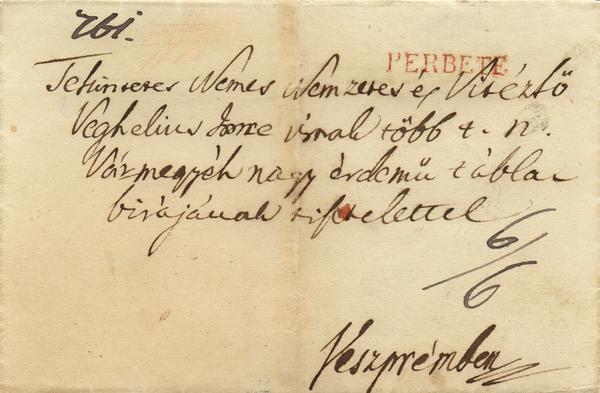 761.
PERBETE
Tekintetes Nemes Nemzetes és Vitézlő
Veghelius Imre úrnak több t. n.
Vármegyék nagy érdemű tábla
birájának tisztelettel
6/6
Veszprémben